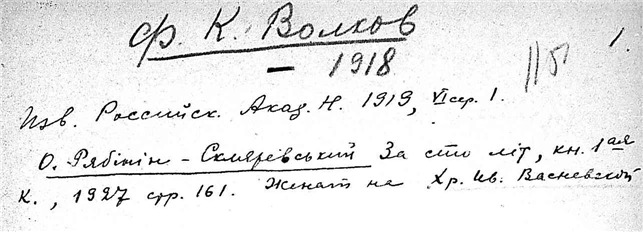 Ф. К. Волков
— 1918
115 1.
Изв. Российск. Акад. Н. 1919, VI сер. 1.
О. Рябінін-Скляревський За сто літ, кн. 1ая
К., 1927 стр. 161. Женат на Хр. Ив. Васневской